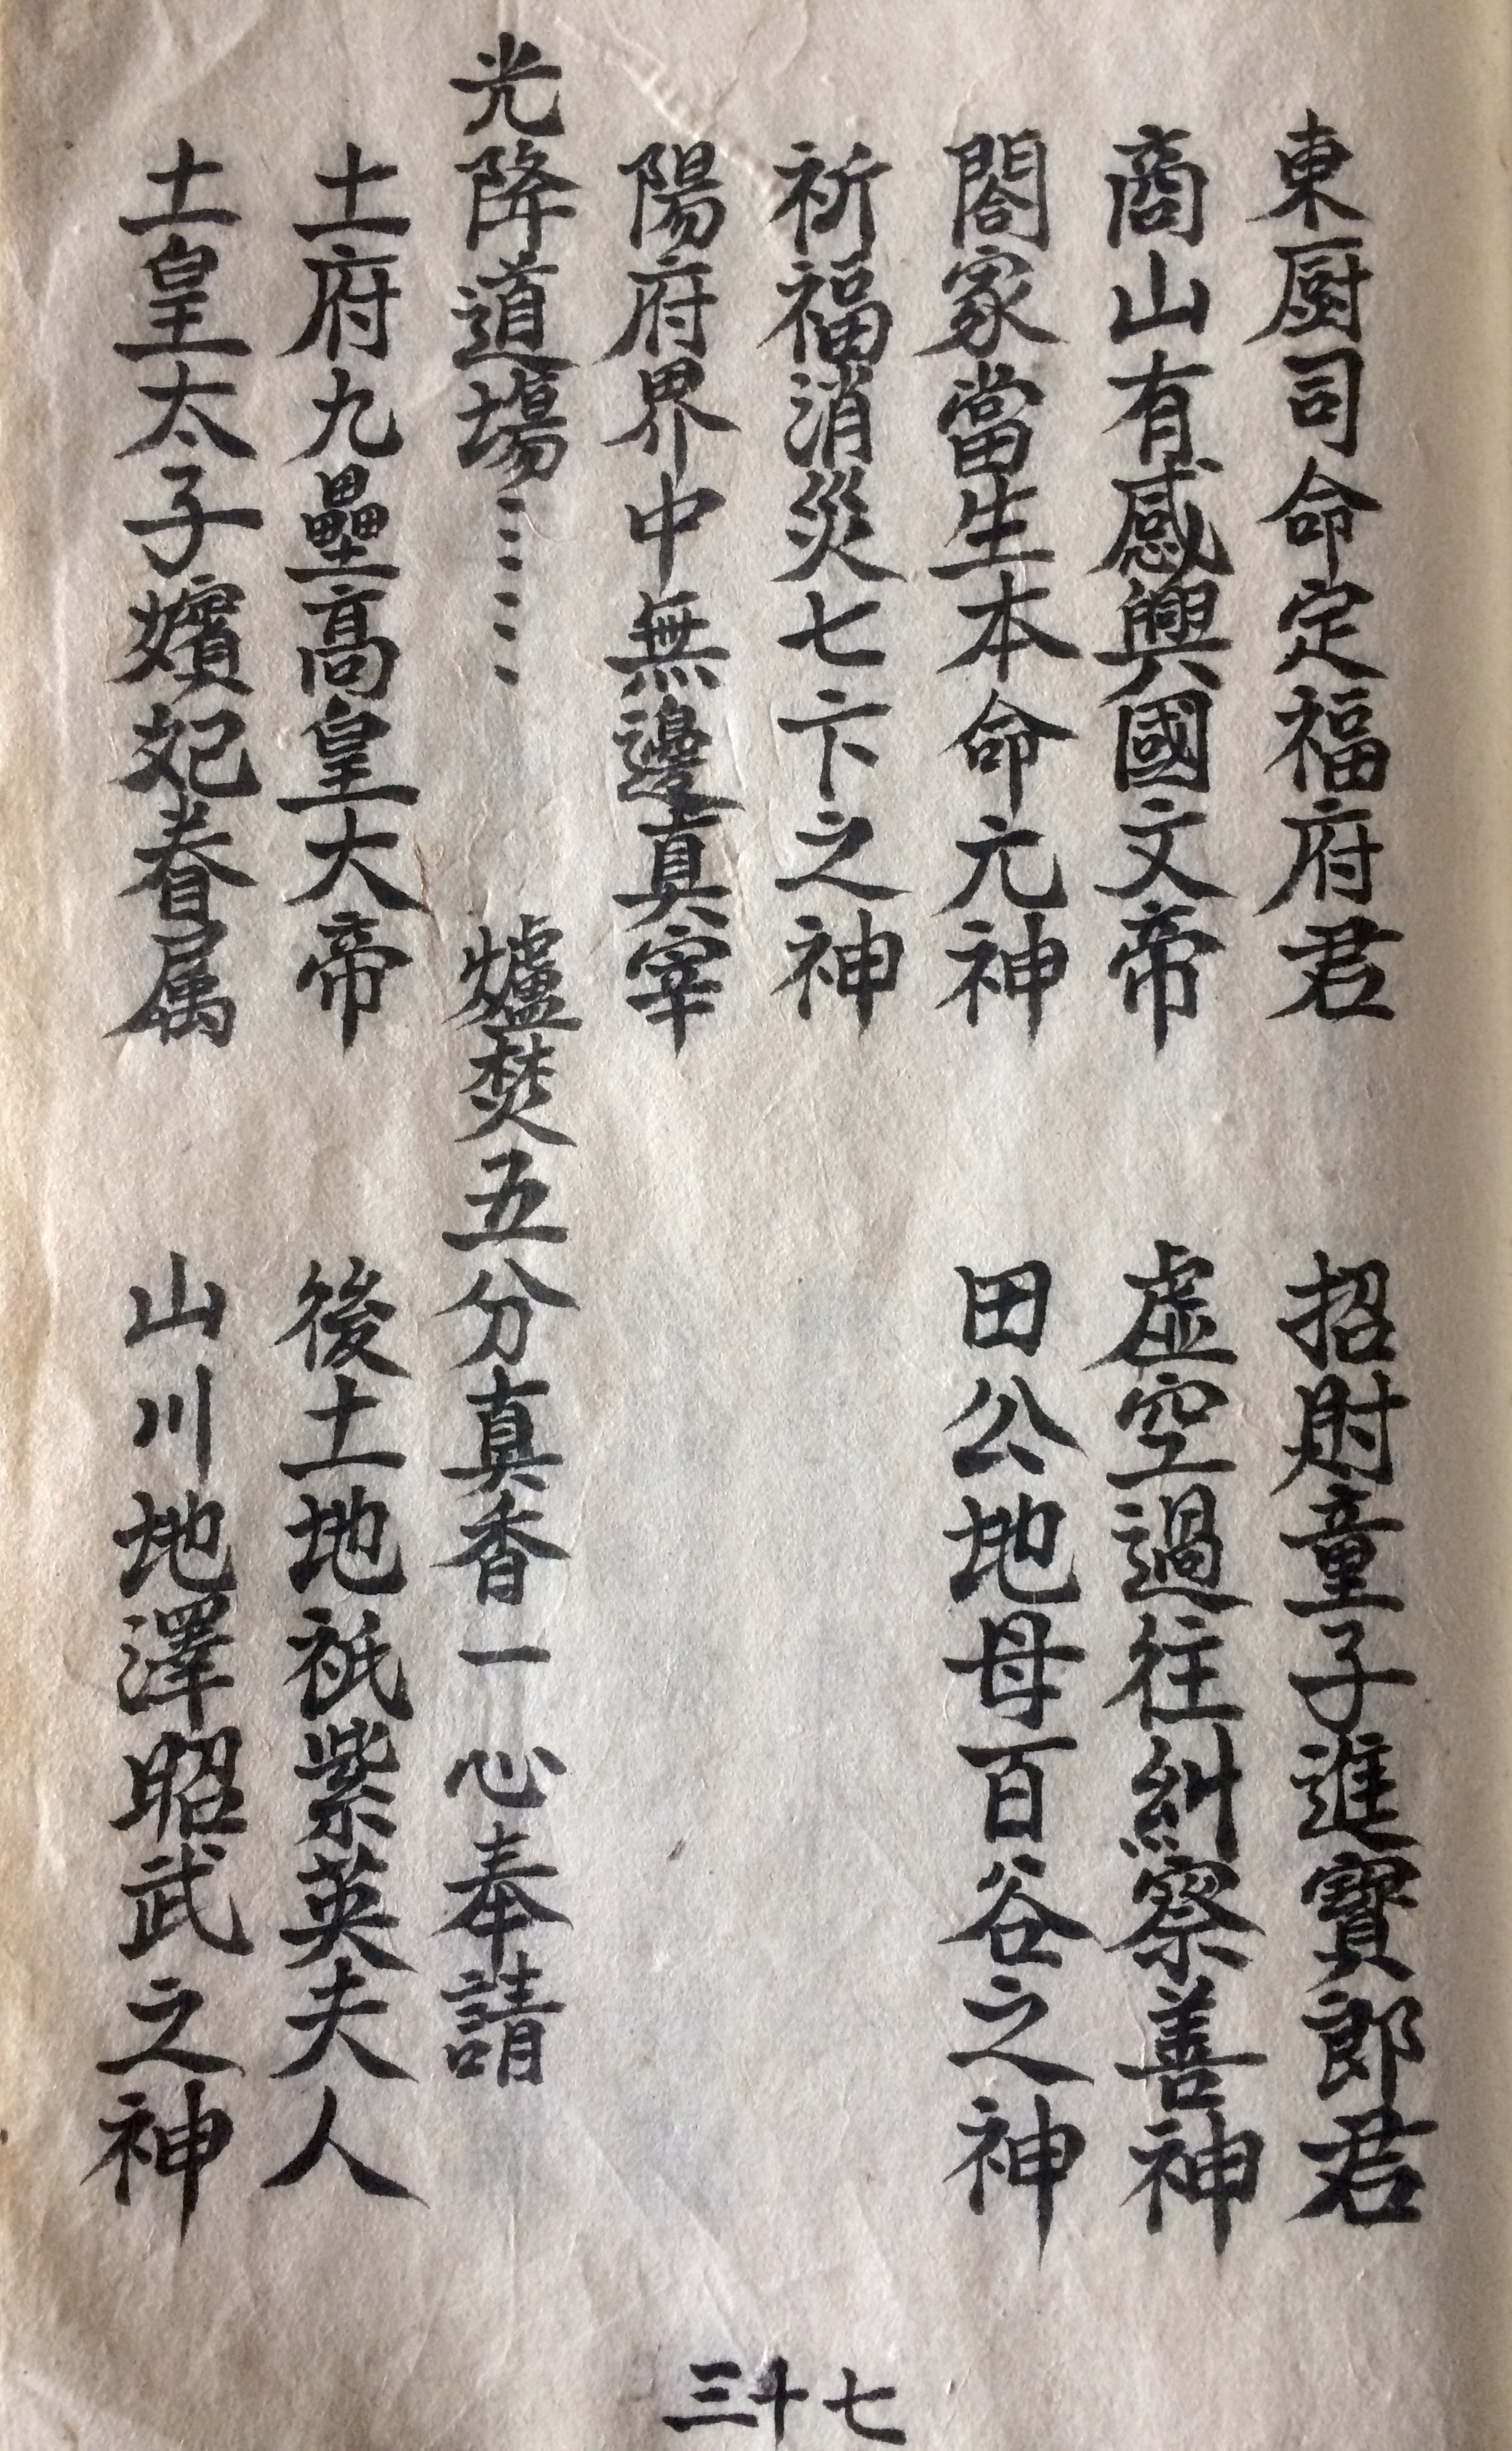 東厨司命定福府君　招財童子進寶郎君
商山有感興國文帝　虛空過往糾察善神
閤家當生本命元神　田公地母百谷之神
祈福消災七卞之神
陽府界中無邊真宰
光降道場⋯⋯　爐焚五分真香一心奉請
土府九壘高皇大帝　後土地祇紫英夫人
土皇太子嬪妃眷属　山川地澤昭武之神
三十七